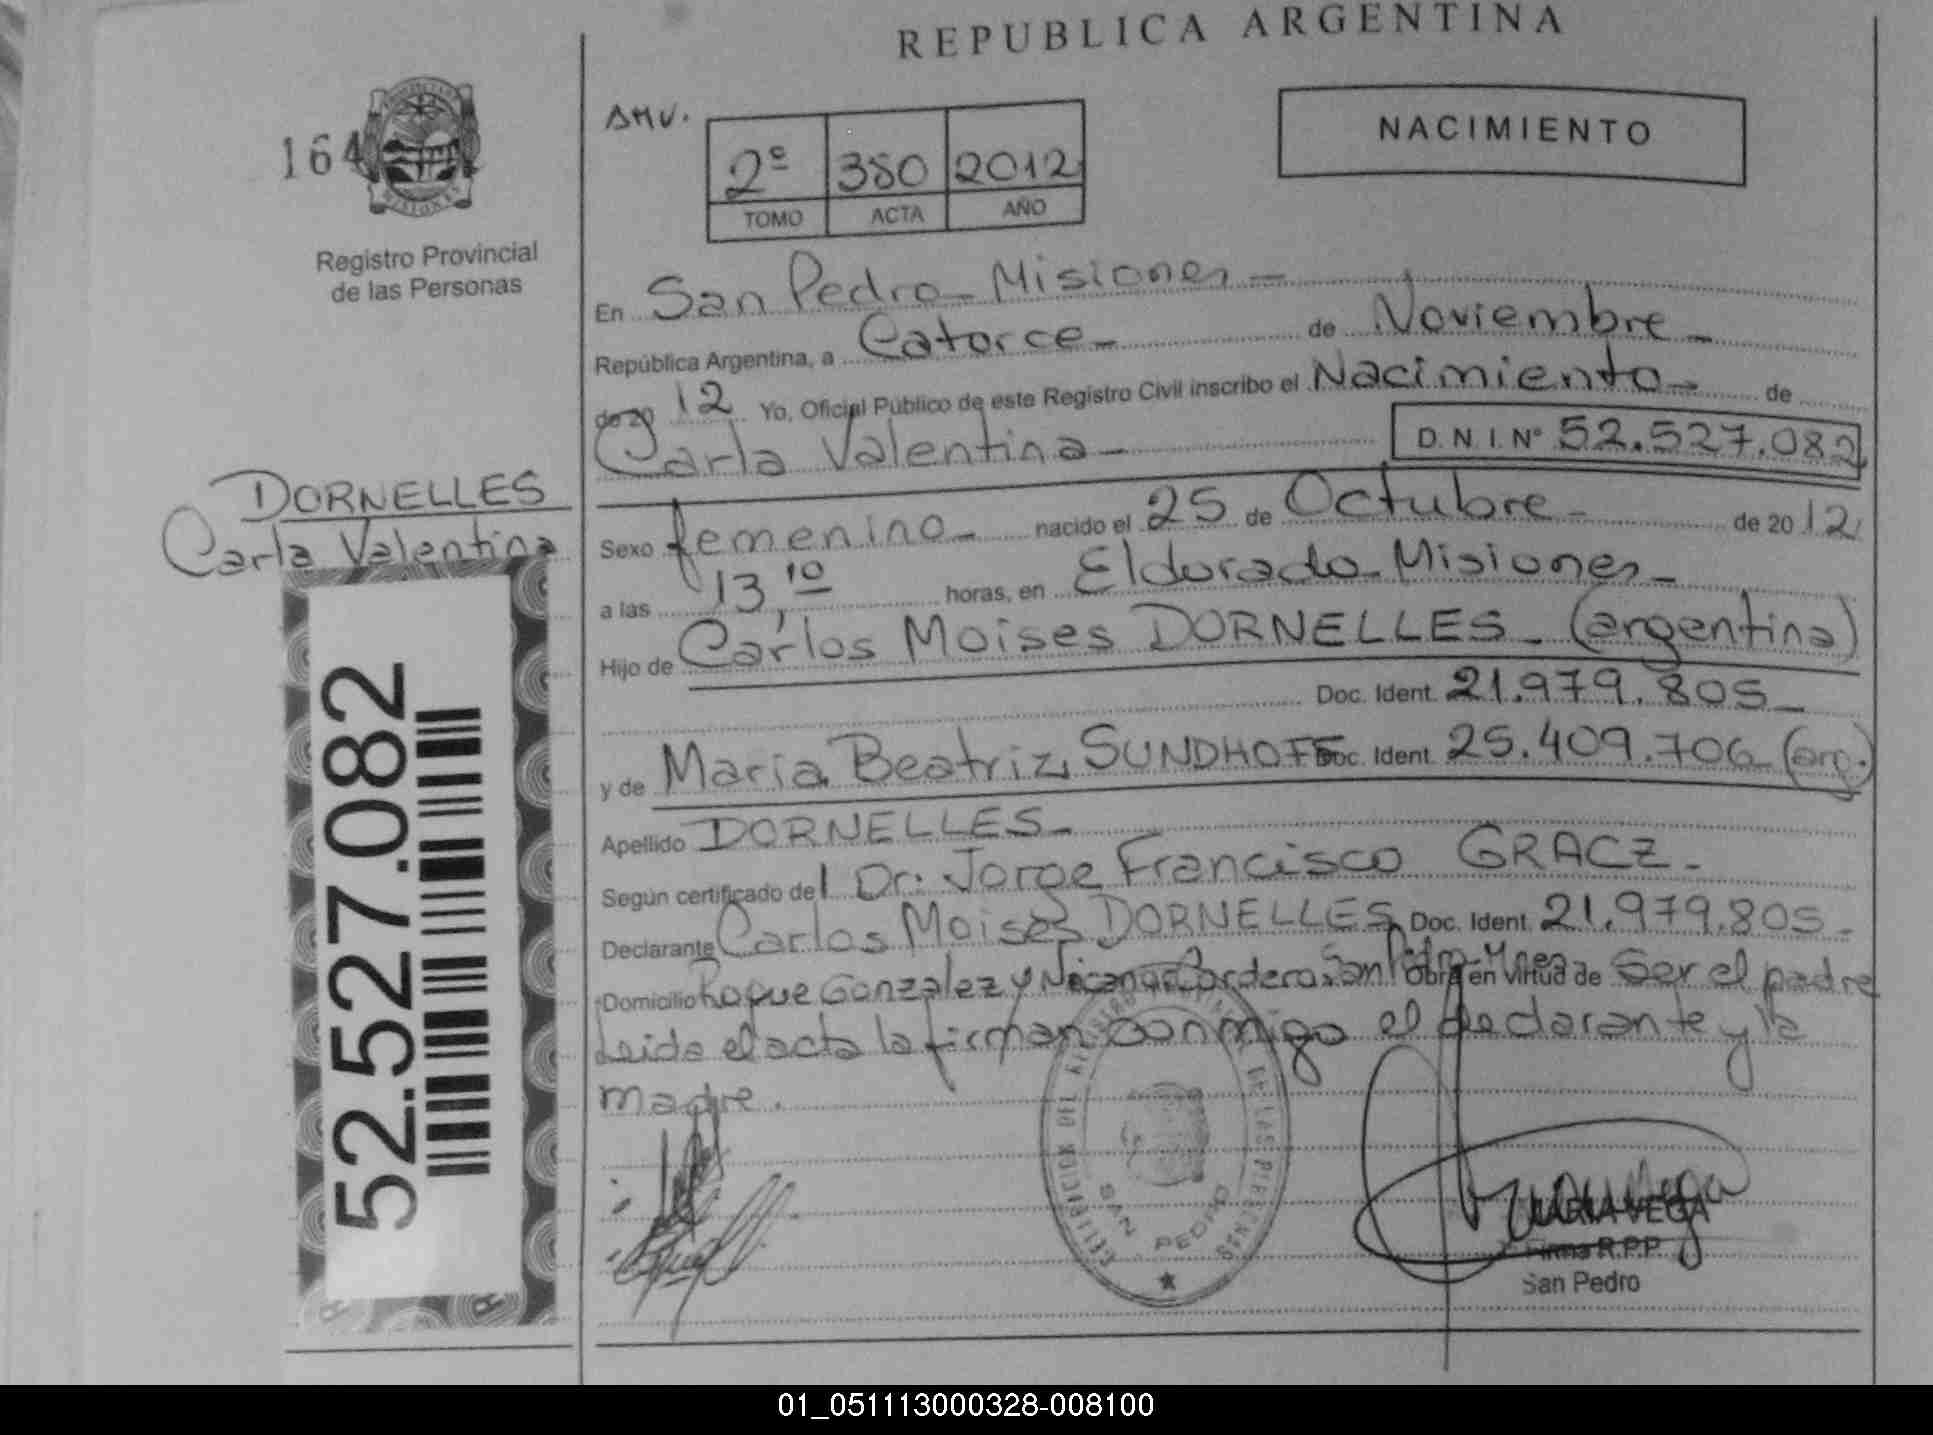 REPUBLICA ARGENTINA
NACIMIENTO
AMV.
2º 380 2012
TOMO ACTA AÑO
164
Registro Provincial
de las Personas
DORNELLES
Carla Valentina
52.527.082
En San Pedro - Misiones -
República Argentina, a Catorce - de Noviembre -
de 20 12 Yo, Oficial Público de este Registro Civil inscribo el Nacimiento - de
Carla Valentina - D.N.I.Nº 52.527.082
Sexo femenino - nacido el 25 de Octubre - de 20 12
a las 13,10 horas, en Eldorado - Misiones -
Hijo de Carlos Moises DORNELLES - (argentina)
Doc. Ident. 21.979.805 -
y de Maria Beatriz SUNDHOFF Doc. Ident. 25.409.706 (arg.)
Apellido DORNELLES -
Según certificado del Dr. Jorge Francisco GRACZ -
Declarante Carlos Moises DORNELLES Doc. Ident. 21.979.805 -
Domicilio Roque Gonzalez y Nicanor Cordero. San Pedro - Mnes - Obra en virtud de Ser el padre
Leida el acta la firman conmigo el declarante y la
madre.
SAN PEDRO
MARIA VEGA
Firma R.P.P.
San Pedro
01_051113000328-008100